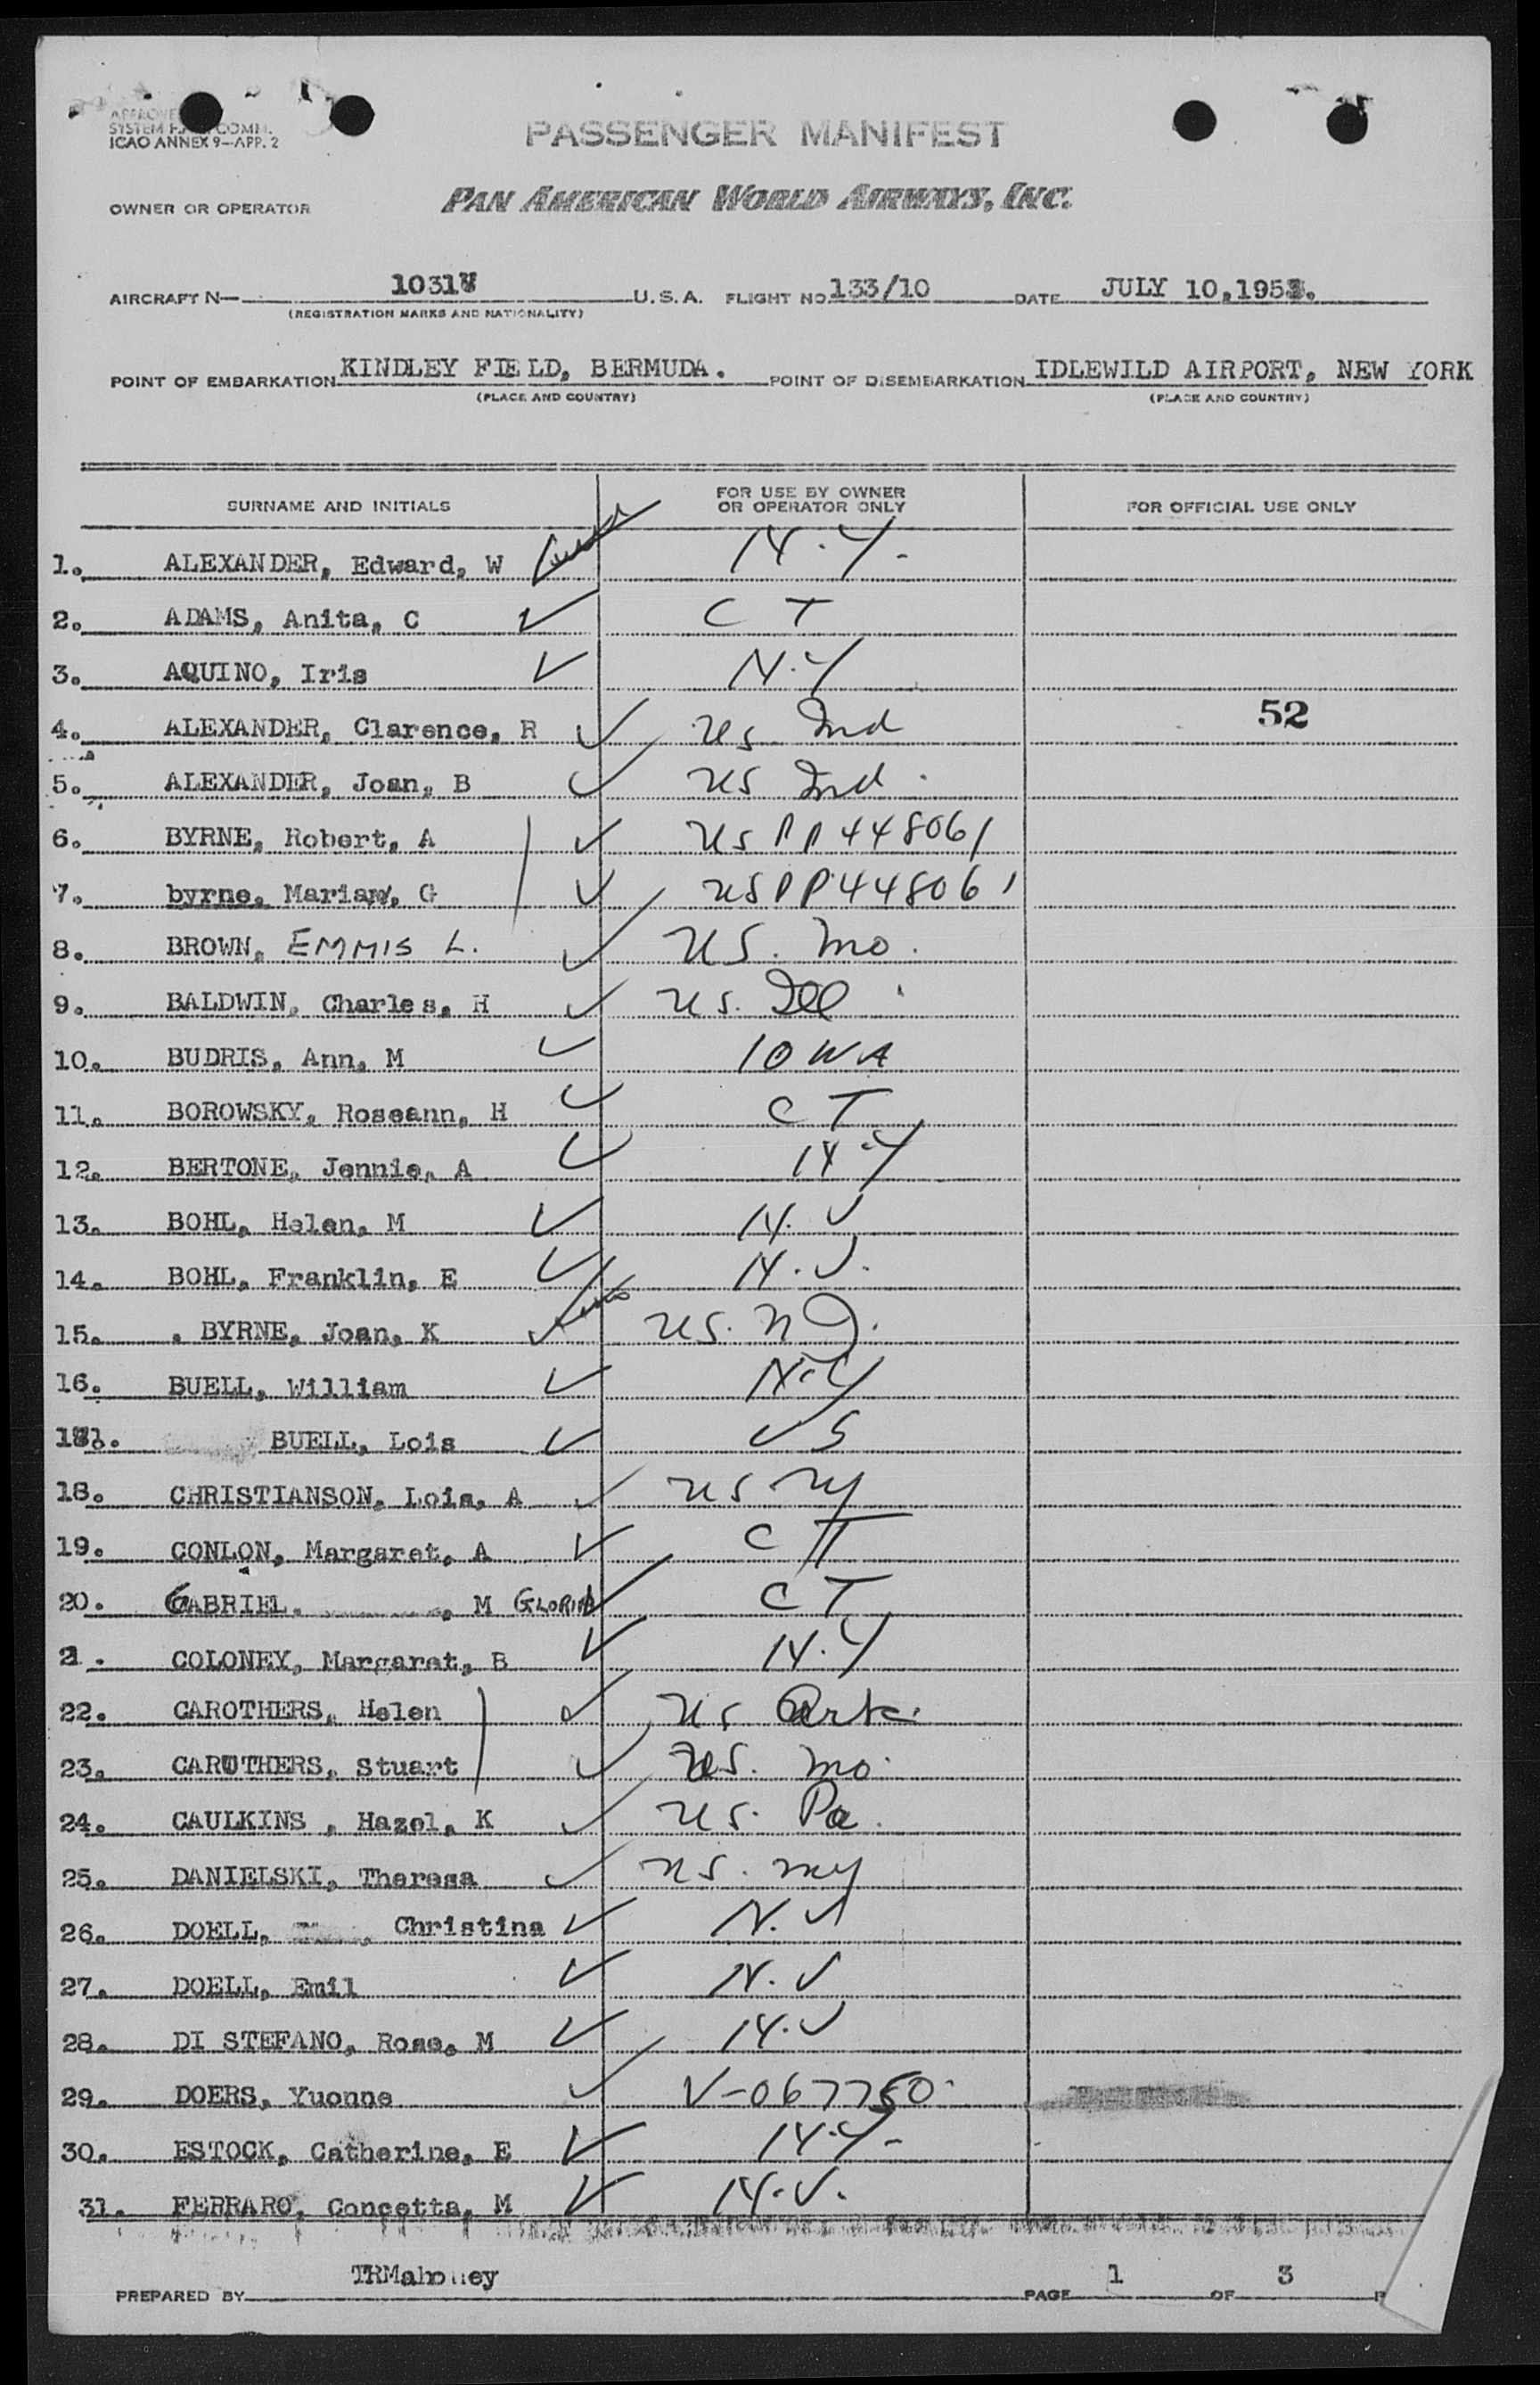 SYSTEM
ICAO ANNEX 9-APP. 2
PASSENGER MANIFEST
OWNER OR OPERATOR PAN AMERICAN WORLD AIRWAYS, INC.
AIRCRAFT N— 1031V U.S.A. FLIGHT NO 133/10 DATE JULY 10,195
(REGISTRATION MARKS AND NATIONALITY)
POINT OF EMBARKATION KINDLEY FIELD, BERMUDA. POINT OF DISEMBARKATION IDLEWILD AIRPORT, NEW YORK
(PLACE AND COUNTRY) (PLACE AND COUNTRY)
SURNAME AND INITIALS FOR USE BY OWNER OR OPERATOR ONLY FOR OFFICIAL USE ONLY
1. ALEXANDER, Edward, W N.Y-
2. ADAMS, Anita, C C T
3. AQUINO, Iris N.Y
4. ALEXANDER, Clarence, R US Ind 52
5. ALEXANDER, Joan, B US Ind.
6. BYRNE, Robert, A US PP 448061
7. byrne, Marian, G US PP 448061
8. BROWN, EMMIS L. US. Mo.
9. BALDWIN, Charles, H US. Ill
10. BUDRIS, Ann, M IOWA
11. BOROWSKY, Roseann, H C T
12. BERTONE, Jennie, A N.Y
13. BOHL, Helen, M N.J
14. BOHL, Franklin, E N.J.
15. . BYRNE, Joan, K US. NJ.
16. BUELL, William N.Y
17. BUELL, Lois US
18. CHRISTIANSON, Lois, A US NY
19. CONLON, Margaret, A C T
20. GABRIEL. , M GLORIA C T
21. COLONEY, Margaret, B N.Y
22. CAROTHERS, Helen US Ark.
23. CAROTHERS, Stuart US. Mo.
24. CAULKINS , Hazel, K US. Pa.
25. DANIELSKI, Theresa US. NY
26. DOELL, Christina N.J
27. DOELL, Emil N.J
28. DI STEFANO, Rose, M N.J
29. DOERS, Yuonne V-067750
30. ESTOCK, Catherine, E N.Y-
31. FERRARO, Concetta, M N.J.
PREPARED BY TRMahoney PAGE 1 OF 3